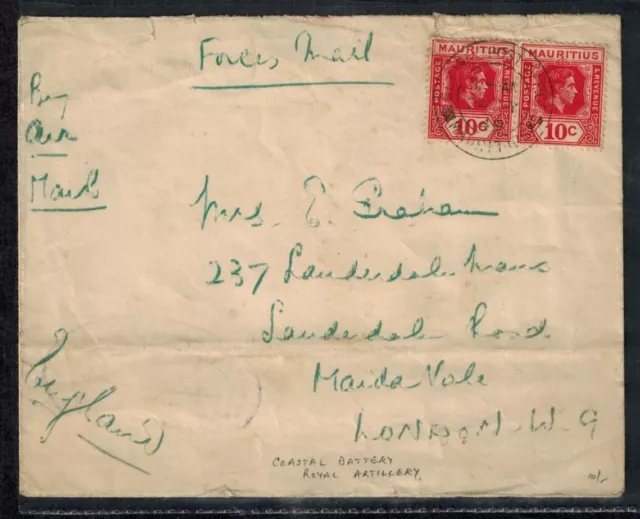 Forces Mail
By
Air
Mail
MAURITIUS
POSTAGE
& REVENUE
10c
MAURITIUS
POSTAGE
& REVENUE
10c
Mrs. E. Graham
237 Lauderdale Mans
Lauderdale Road
Maida Vale
LONDON. W. 9
England
COASTAL BATTERY
ROYAL ARTILLERY.
10/-